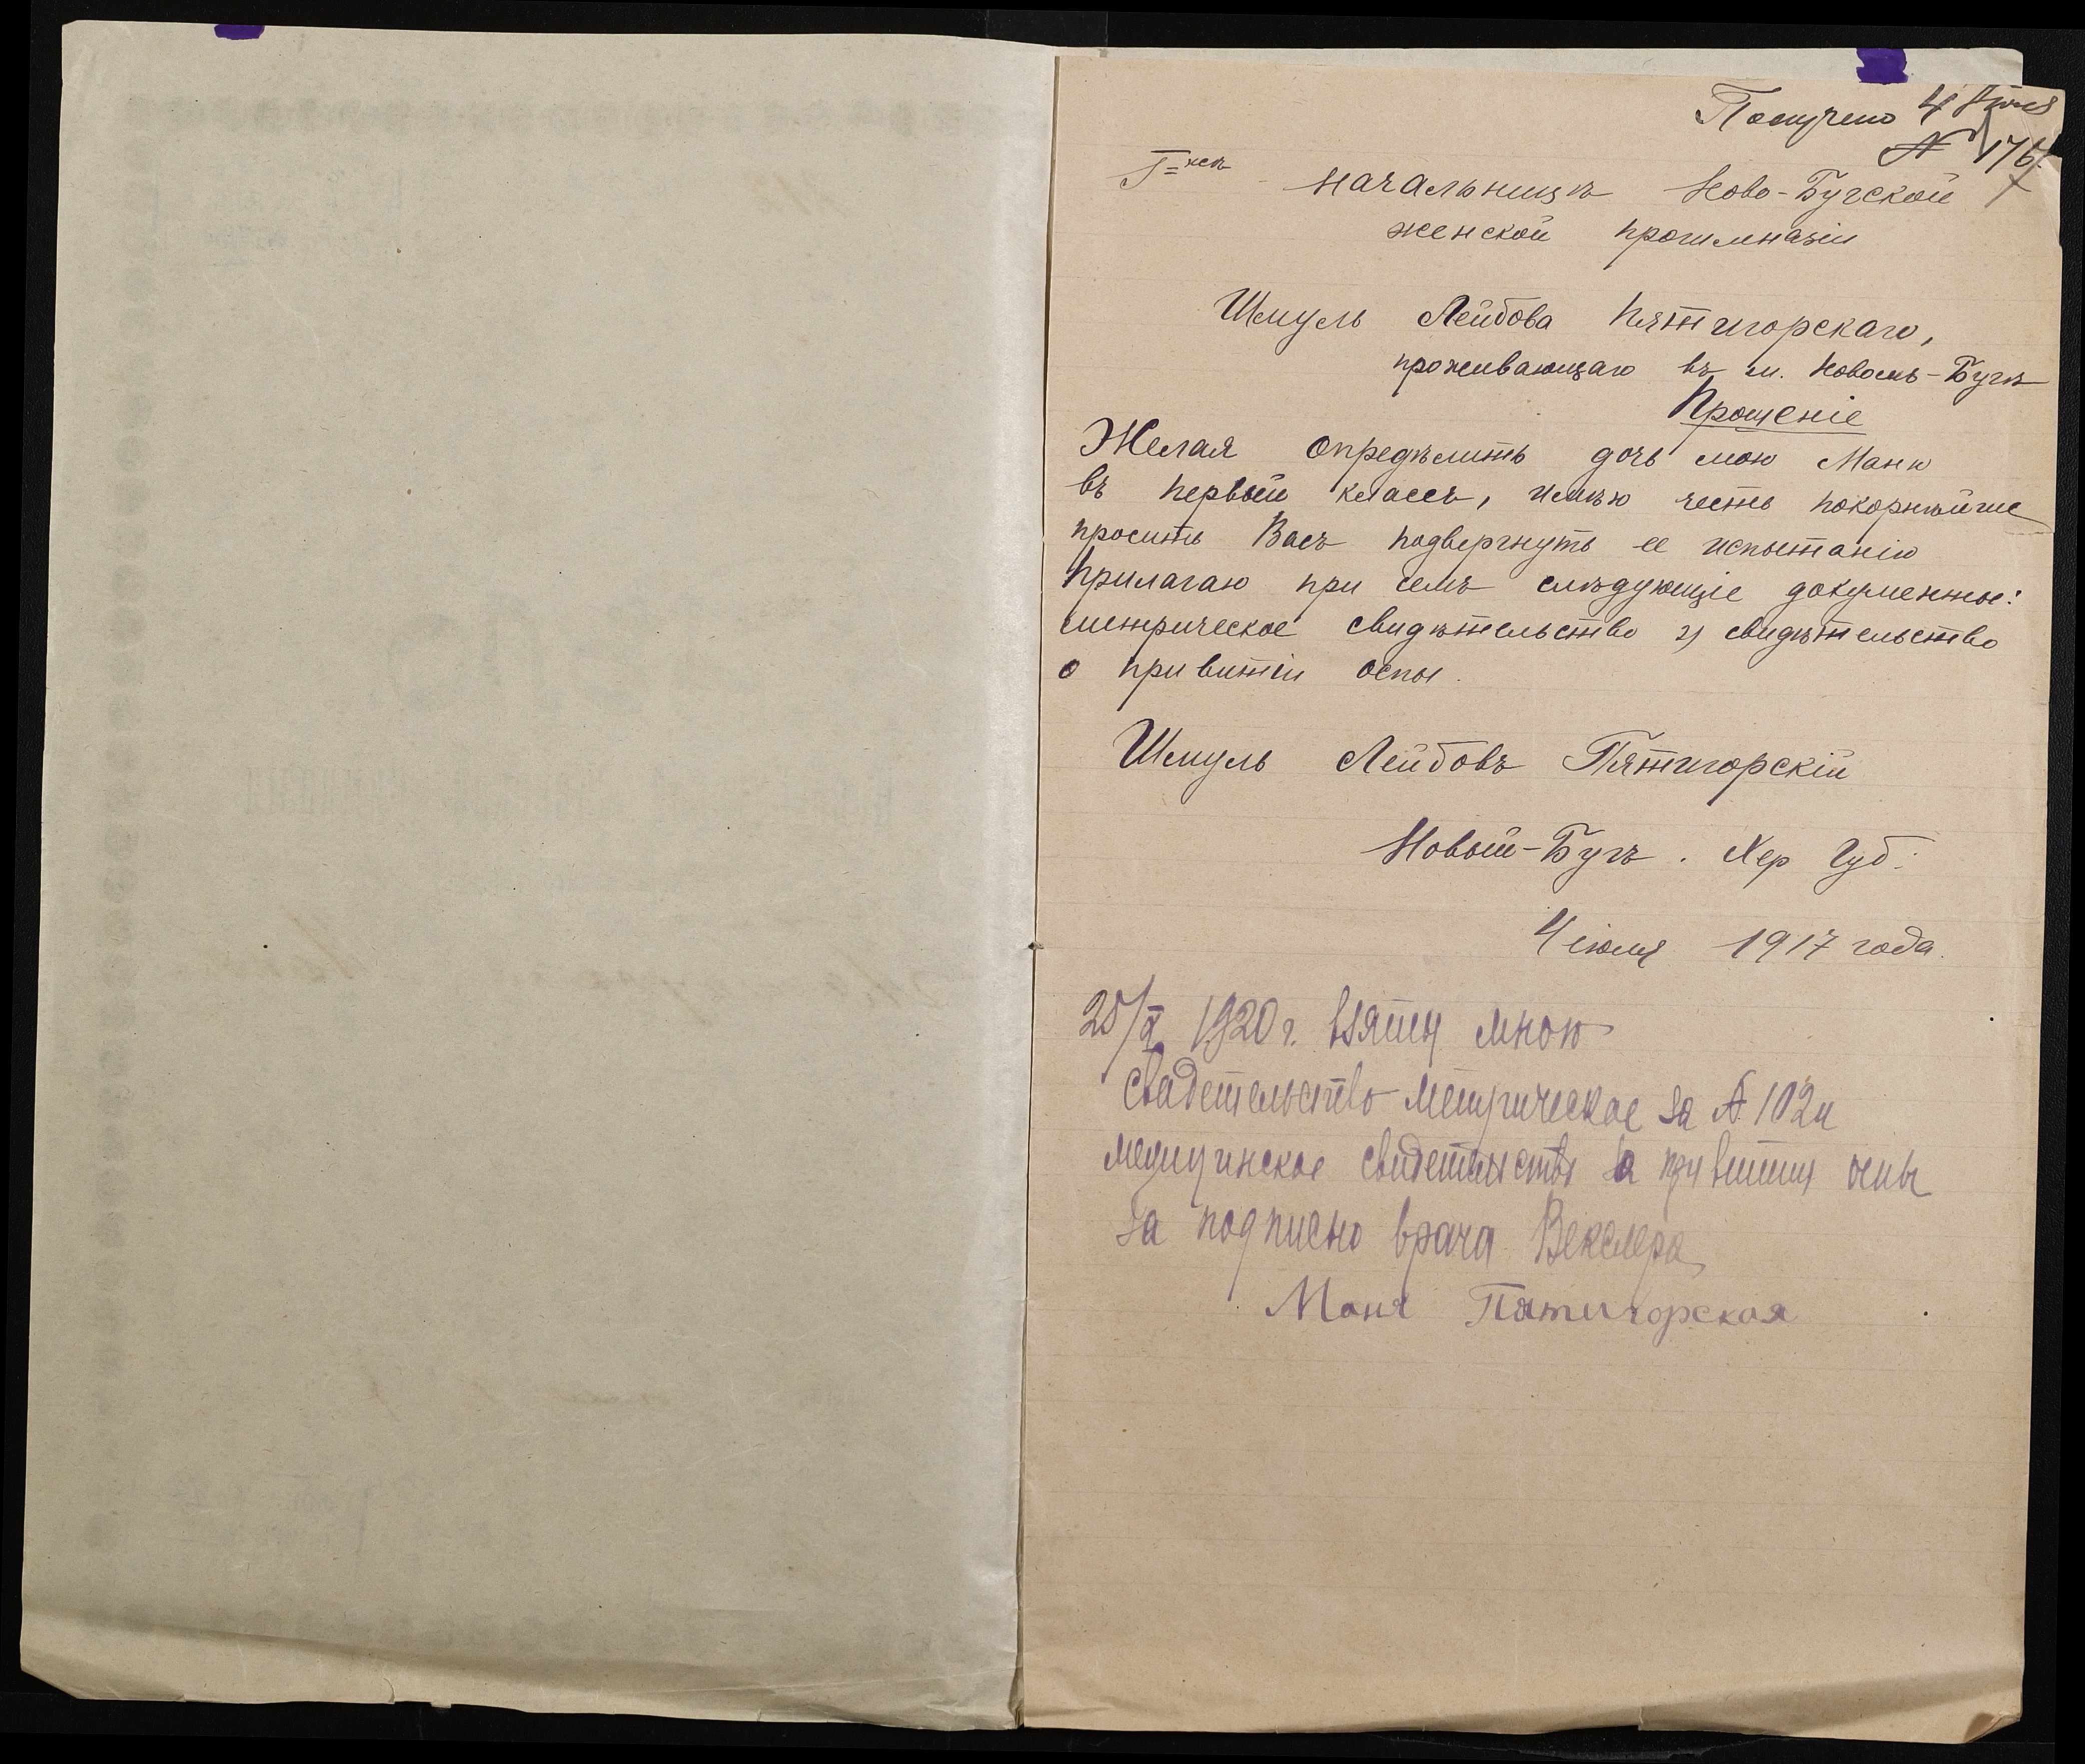 Получено 4 Июля
№ 176.
Г=жѣ Начальницѣ Ново-Бугской
женской прогимназіи
Шмуль Лейбова Пятигорскаго,
проживающаго въ м. Новомъ-Бугѣ
Прошеніе
Желая опредѣлить дочь мою Маню
въ первый классъ, имѣю честь покорнѣйше
просить Васъ подвергнуть ее испытанію
Прилагаю при семъ слѣдующіе документы:
метрическое свидѣтельство 2) свидѣтельство
о привитіи оспы.
Шмуль Лейбовъ Пятигорскій
Новый-Бугъ. Хер Губ.
4 іюля 1917 года.
25/X 1920 г. взяты мною
свадетельство метрическое за № 102 и
медицинское свидетельство о привитии оспы
за подписью врача Векслера
Маня Пятигорская